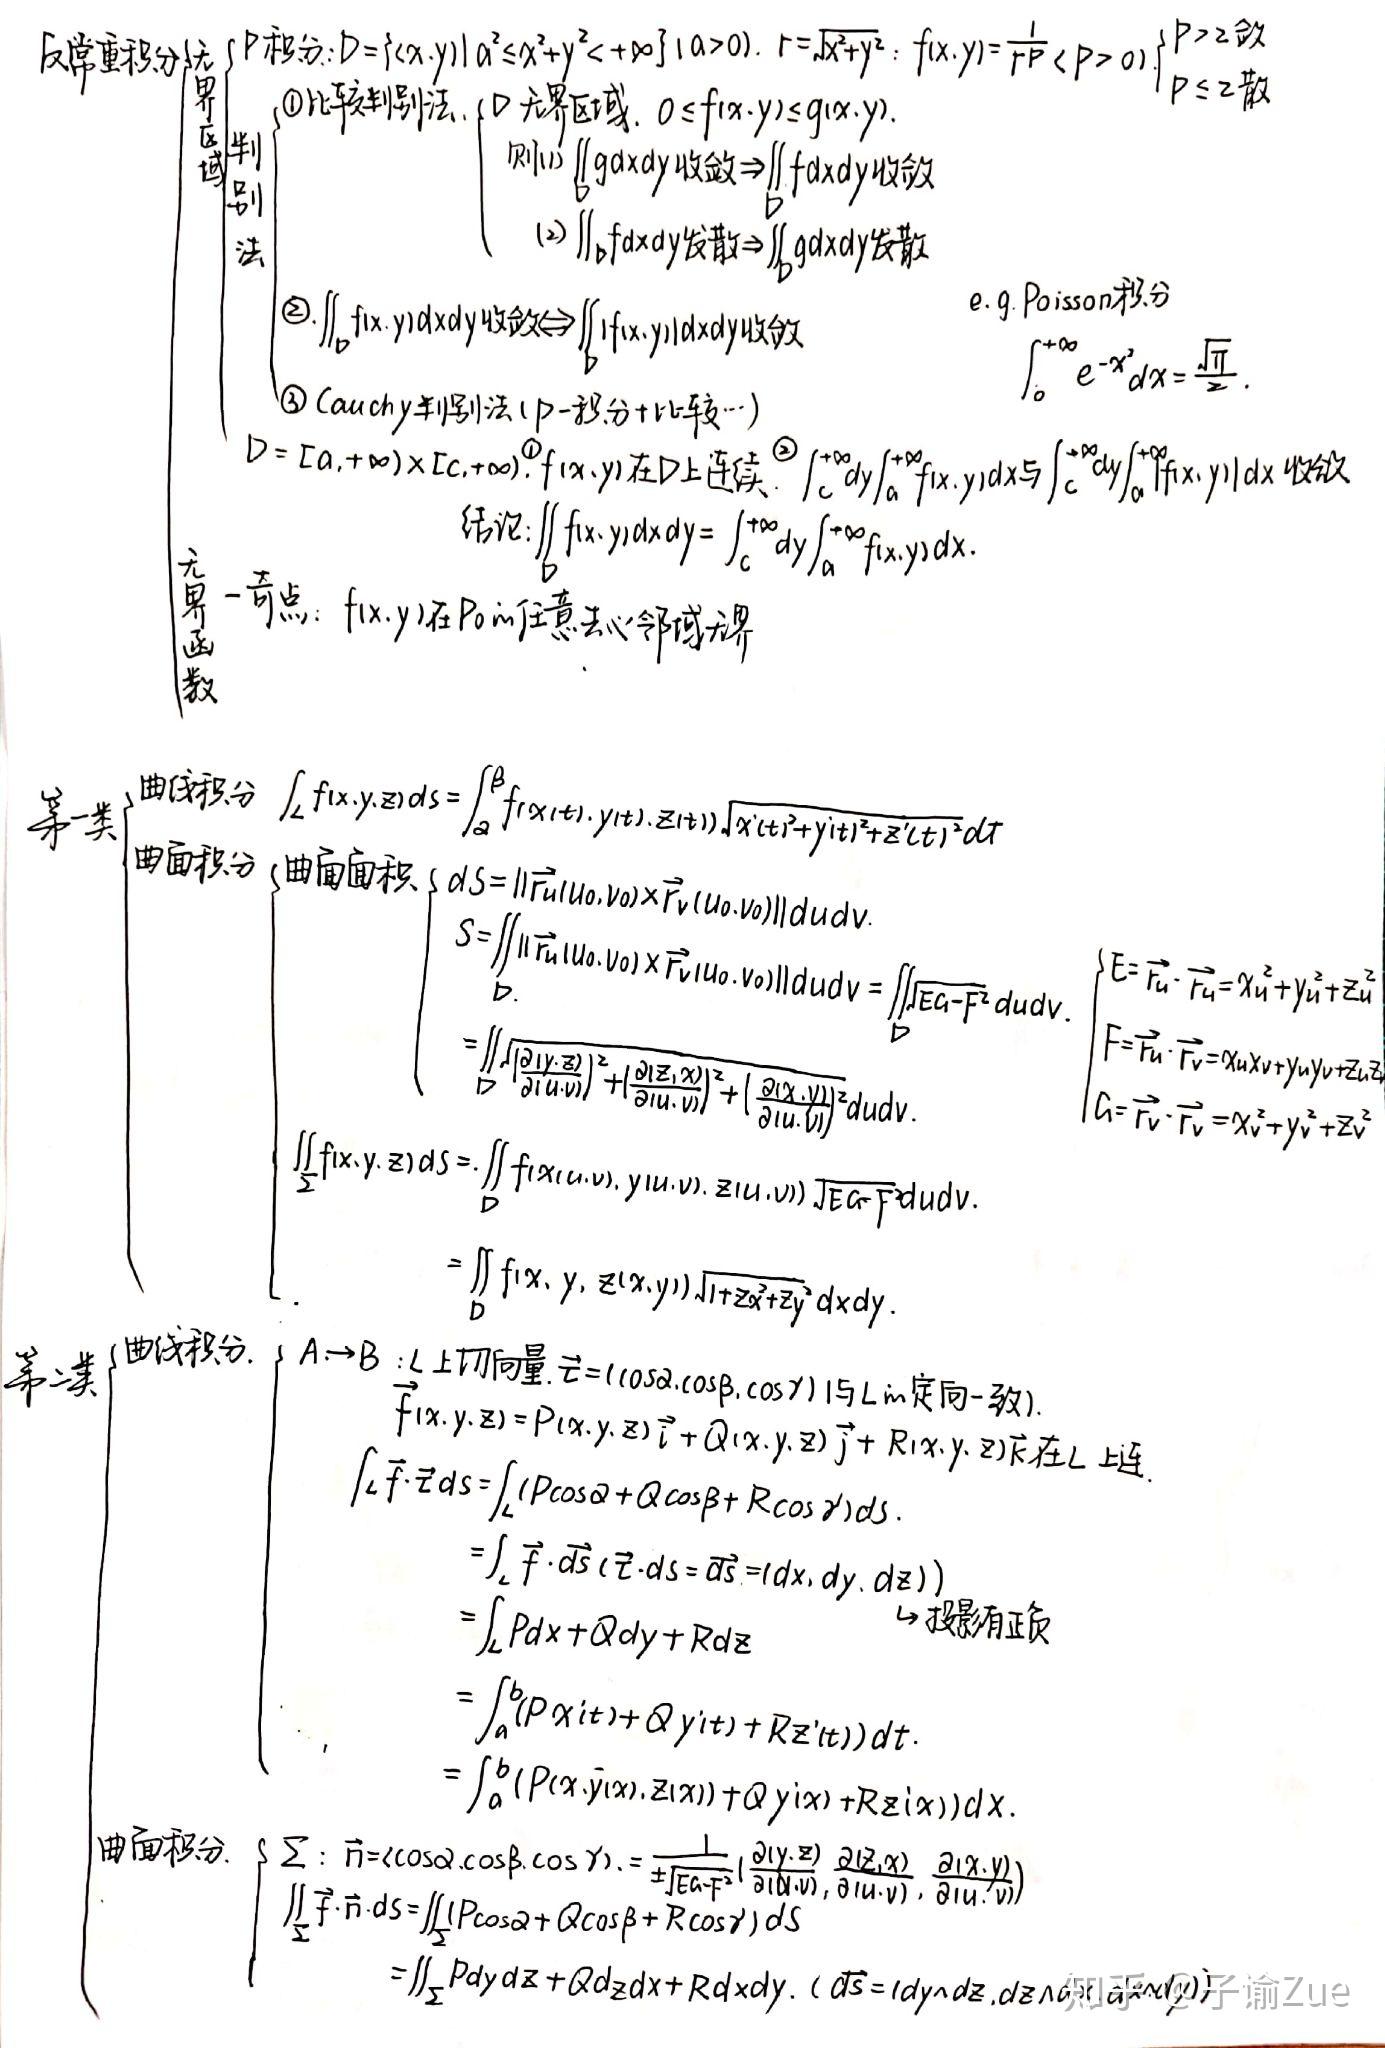 反常重积分 无界区域 P积分: D={(x.y)| a²≤x²+y²<+∞}(a>0). r=√(x²+y²): f(x.y)=1/r^p (p>0). p>2敛
p≤2散
判别法 ①比较判别法. D无界区域. 0≤f(x.y)≤g(x.y).
则(1) ∬_D gdxdy收敛⇒∬_D fdxdy收敛
(2) ∬_D fdxdy发散⇒∬_D gdxdy发散
②. ∬_D f(x.y)dxdy收敛⇔∬_D |f(x.y)|dxdy收敛
e.g. Poisson积分
∫_0^{+∞} e^{-x²}dx=√π/2.
③ Cauchy判别法(p-积分+比较…)
D=[a,+∞)×[c,+∞). ①f(x.y)在D上连续. ②∫_c^{+∞}dy∫_a^{+∞}f(x.y)dx与∫_c^{+∞}dy∫_a^{+∞}|f(x.y)|dx 收敛
结论: ∬_D f(x.y)dxdy=∫_c^{+∞}dy∫_a^{+∞}f(x.y)dx.
无界函数 -奇点: f(x.y)在P0的任意去心邻域无界
第一类 曲线积分 ∫_L f(x.y.z)ds=∫_α^β f(x(t).y(t).z(t))√(x'(t)²+y'(t)²+z'(t)²)dt
曲面积分 曲面面积. dS=||r⃗u(u0.v0)×r⃗v(u0.v0)||dudv.
S=∬_D ||r⃗u(u0.v0)×r⃗v(u0.v0)||dudv=∬_D √(EG-F²)dudv.
=∬_D √((∂(y.z)/∂(u.v))²+(∂(z,x)/∂(u.v))²+(∂(x.y)/∂(u.v))²)dudv.
E=r⃗u·r⃗u=xu²+yu²+zu²
F=r⃗u·r⃗v=xuxv+yuyv+zuz
G=r⃗v·r⃗v=xv²+yv²+zv²
∬_Σ f(x.y.z)dS=∬_D f(x(u.v),y(u.v).z(u.v))√(EG-F²)dudv.
=∬_D f(x, y, z(x.y))√(1+zx²+zy²)dxdy.
第二类 曲线积分. A→B : L上切向量.τ⃗=(cosα.cosβ.cosγ)(与L的定向一致).
f⃗(x.y.z)=P(x.y.z)i⃗+Q(x.y.z)j⃗+R(x.y.z)k⃗在L上连.
∫_L f⃗·τ⃗ds=∫_L(Pcosα+Qcosβ+Rcosγ)ds.
=∫_L f⃗·ds⃗ (τ⃗·ds=ds⃗=(dx,dy.dz))
↳投影有正负
=∫_L Pdx+Qdy+Rdz
=∫_a^b(Px'(t)+Qy'(t)+Rz'(t))dt.
=∫_a^b(P(x.y(x).z(x))+Qy'(x)+Rz'(x))dx.
曲面积分. Σ: n⃗=(cosα.cosβ.cosγ).=1/±√(EG-F²)(∂(y.z)/∂(u.v), ∂(z,x)/∂(u.v), ∂(x.y)/∂(u.v))
∬_Σ f⃗·n⃗·dS=∬_Σ(Pcosα+Qcosβ+Rcosγ)dS
=∬_Σ Pdydz+Qdzdx+Rdxdy. (dS⃗=(dy∧dz.dz∧dx.dx∧dy))
知乎 @子谕Zue